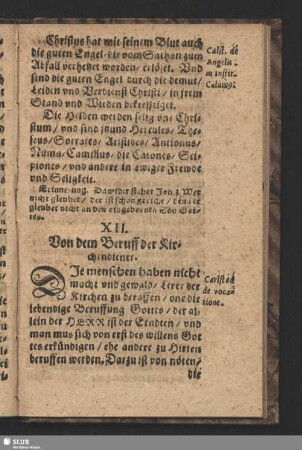 Christus hat mit seinem Blut auch
die guten Engel / die vom Sathan zum
Abfall verhetzet worden / erlöset. Vnd
sind die guten Engel durch die demut /
Leiden vnd Verdienst Christi / in jrem
Stand vnd Wirden bekrefftiget.
Calst. de
Angelis
in Instit.
Caluin.
Die Heiden werden selig one Chri-
stum / vnd sind jtzund Hercules / The-
seus / Socrates / Aristides / Antionus /
Numa / Camillus / die Catones / Sci-
piones / vnd andere in ewiger Frewde
vnd Seligkeit.
Dawider stehet Joh. 3. Wer
nicht gleubet / der ist schon gerichtet / denn er
gleubet nicht an den eingebornen Son Got-
tes.
XII.
Von dem Beruff der Kir-
chendiener.
DJe menschen haben nicht
macht vnd gewald / Lerer der
Kirchen zu beruffen / one die
lebendige Beruffung Gottes / der al-
lein der HERR ist der Erndten / vnd
man mus sich von erst des willens Got
tes erkündigen / ehe andere zu Hirten
beruffen werden. Darzu ist von nöten /
die
Carlstad
de voca
tione.
SLUB